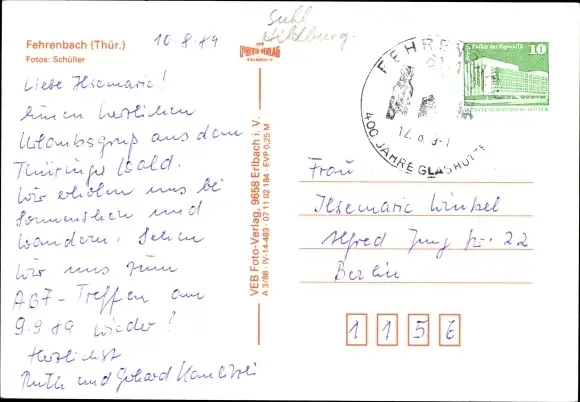 Fehrenbach (Thür.)
Fotos: Schüller
10.8.89
Liebe Ilsemarie!
Einen herzlichen
Urlaubsgruß aus dem
Thüringer Wald.
Wir erholen uns bei
Sonnenschein und
Wandern. Sehen
wir uns zum
ABF-Treffen am
9.9.89 wieder?
Herzlichst
Ruth und Gerhard
Suhl
Hildburg.
FOTO VERLAG
ERLBACH
VEB Foto-Verlag, 9658 Erlbach i. V.
A 3/88 · IV-14-483 · 07 11 02 184 · EVP 0,25 M
400 JAHRE GLASHÜTTE
Palast der Republik
10
Frau
Ilsemarie Winkel
Alfred Jung Str. 22
Berlin
1156